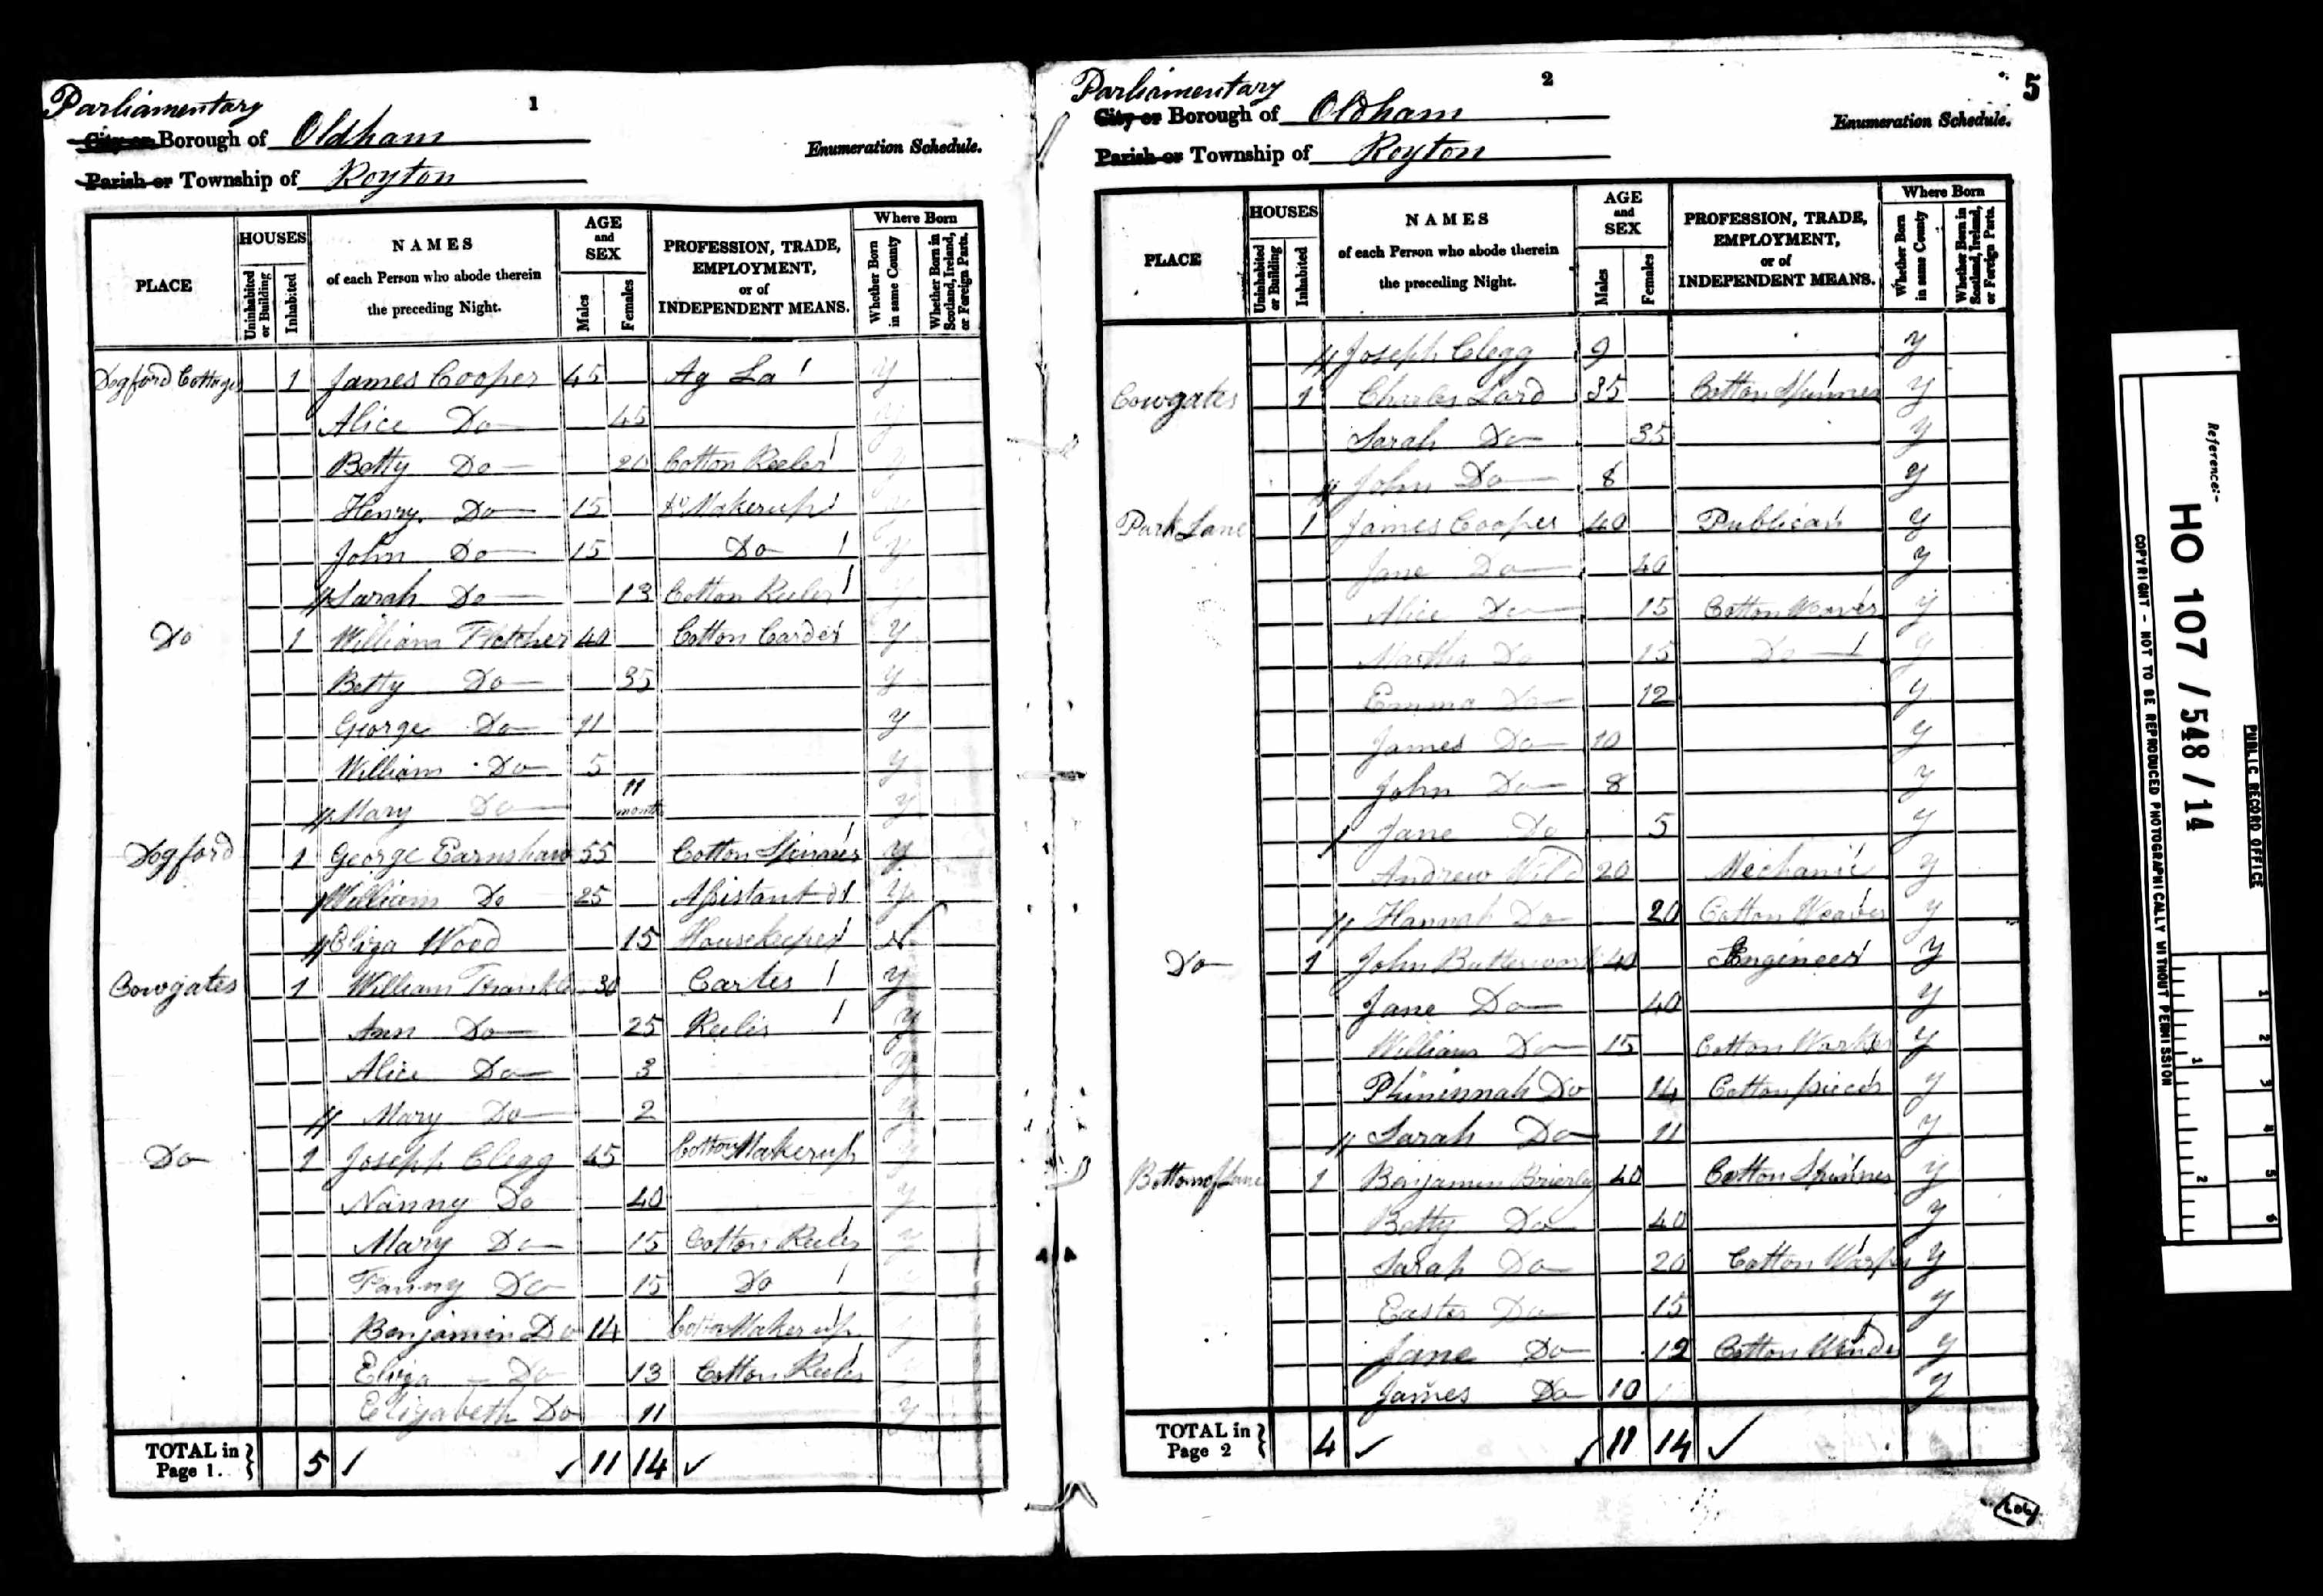 Parliamentary
1
City or Borough of Oldham
Enumeration Schedule.
Parish or Township of Royton
PLACE
HOUSES
Uninhabited or Building
Inhabited
NAMES
of each Person who abode therein
the preceding Night.
AGE and SEX
Males
Females
PROFESSION, TRADE,
EMPLOYMENT,
or of
INDEPENDENT MEANS.
Where Born
Whether Born in same County
Whether Born in Scotland, Ireland, or Foreign Parts.
Dogford Cottages 1 James Cooper 45 Ag La y
Alice Do 45 y
Betty Do 20 Cotton Reeler y
Henry Do 15 Do Makerup y
John Do 15 Do y
Sarah Do 13 Cotton Reeler y
Do 1 William Fletcher 40 Cotton Carder y
Betty Do 35 y
George Do 11 y
William Do 5 y
Mary Do 11 months y
Dogford 1 George Earnshaw 55 Cotton Spinner y
William Do 25 Assistant do y
Eliza Wood 15 Housekeeper N
Cowgates 1 William 30 Carter y
Ann Do 25 Reeler y
Alice Do 3 y
Mary Do 2 y
Do 1 Joseph Clegg 45 Cotton Makerup y
Nanny Do 40 y
Mary Do 15 Cotton Reeler y
Fanny Do 15 Do y
Benjamin Do 14 Cotton Makerup y
Eliza Do 13 Cotton Reeler y
Elizabeth Do 11 y
TOTAL in Page 1. 5 11 14
Parliamentary
2
5
City or Borough of Oldham
Enumeration Schedule.
Parish or Township of Royton
PLACE
HOUSES
Uninhabited or Building
Inhabited
NAMES
of each Person who abode therein
the preceding Night.
AGE and SEX
Males
Females
PROFESSION, TRADE,
EMPLOYMENT,
or of
INDEPENDENT MEANS.
Where Born
Whether Born in same County
Whether Born in Scotland, Ireland, or Foreign Parts.
Joseph Clegg 9 y
Cowgates 1 Charles Lord 35 Cotton Spinner y
Sarah Do 35 y
John Do 8 y
Park Lane 1 James Cooper 40 Publican y
Jane Do 40 y
Alice Do 15 Cotton Weaver y
Martha Do 15 Do y
Emma Do 12 y
James Do 10 y
John Do 8 y
Jane Do 5 y
Andrew Wild 20 Mechanic y
Hannah Do 20 Cotton Weaver y
Do 1 John Butterworth 40 Engineer y
Jane Do 40 y
William Do 15 Cotton Worker y
Phininnah Do 14 Cotton piecer y
Sarah Do 11 y
Bottom of Lane 1 Benjamin Brierley 40 Cotton Spinner y
Betty Do 40 y
Sarah Do 20 Cotton Warper y
Easter Do 15 y
Jane Do 12 Cotton Winder y
James Do 10 y
TOTAL in Page 2 4 11 14
Reference:-
HO 107 / 548 / 14
PUBLIC RECORD OFFICE
COPYRIGHT - NOT TO BE REPRODUCED PHOTOGRAPHICALLY WITHOUT PERMISSION
1
2
3
4
5
6
1
2